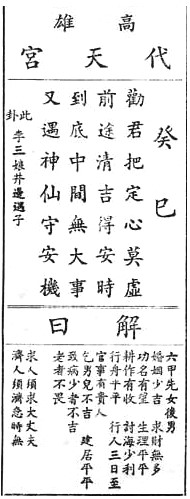 高雄
代天宮
癸巳
勸君把定心莫虛
前途清吉得安時
到底中間無大事
又遇神仙守安機
此卦
李三娘井邊遇子
解曰
六甲先女後男
婚姻少吉 求財無多
功名有望 生理平平
耕作有收 討海少利
行舟平平 行人三日至
官事有貴人
乞男兒不吉 建居平平
致病少者不吉
老者不畏
求人須求大丈夫
濟人須濟急時無